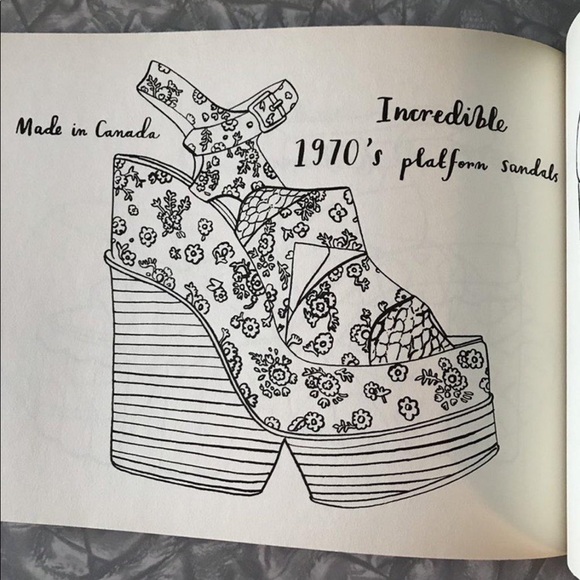 Made in Canada
Incredible
1970's platform sandals